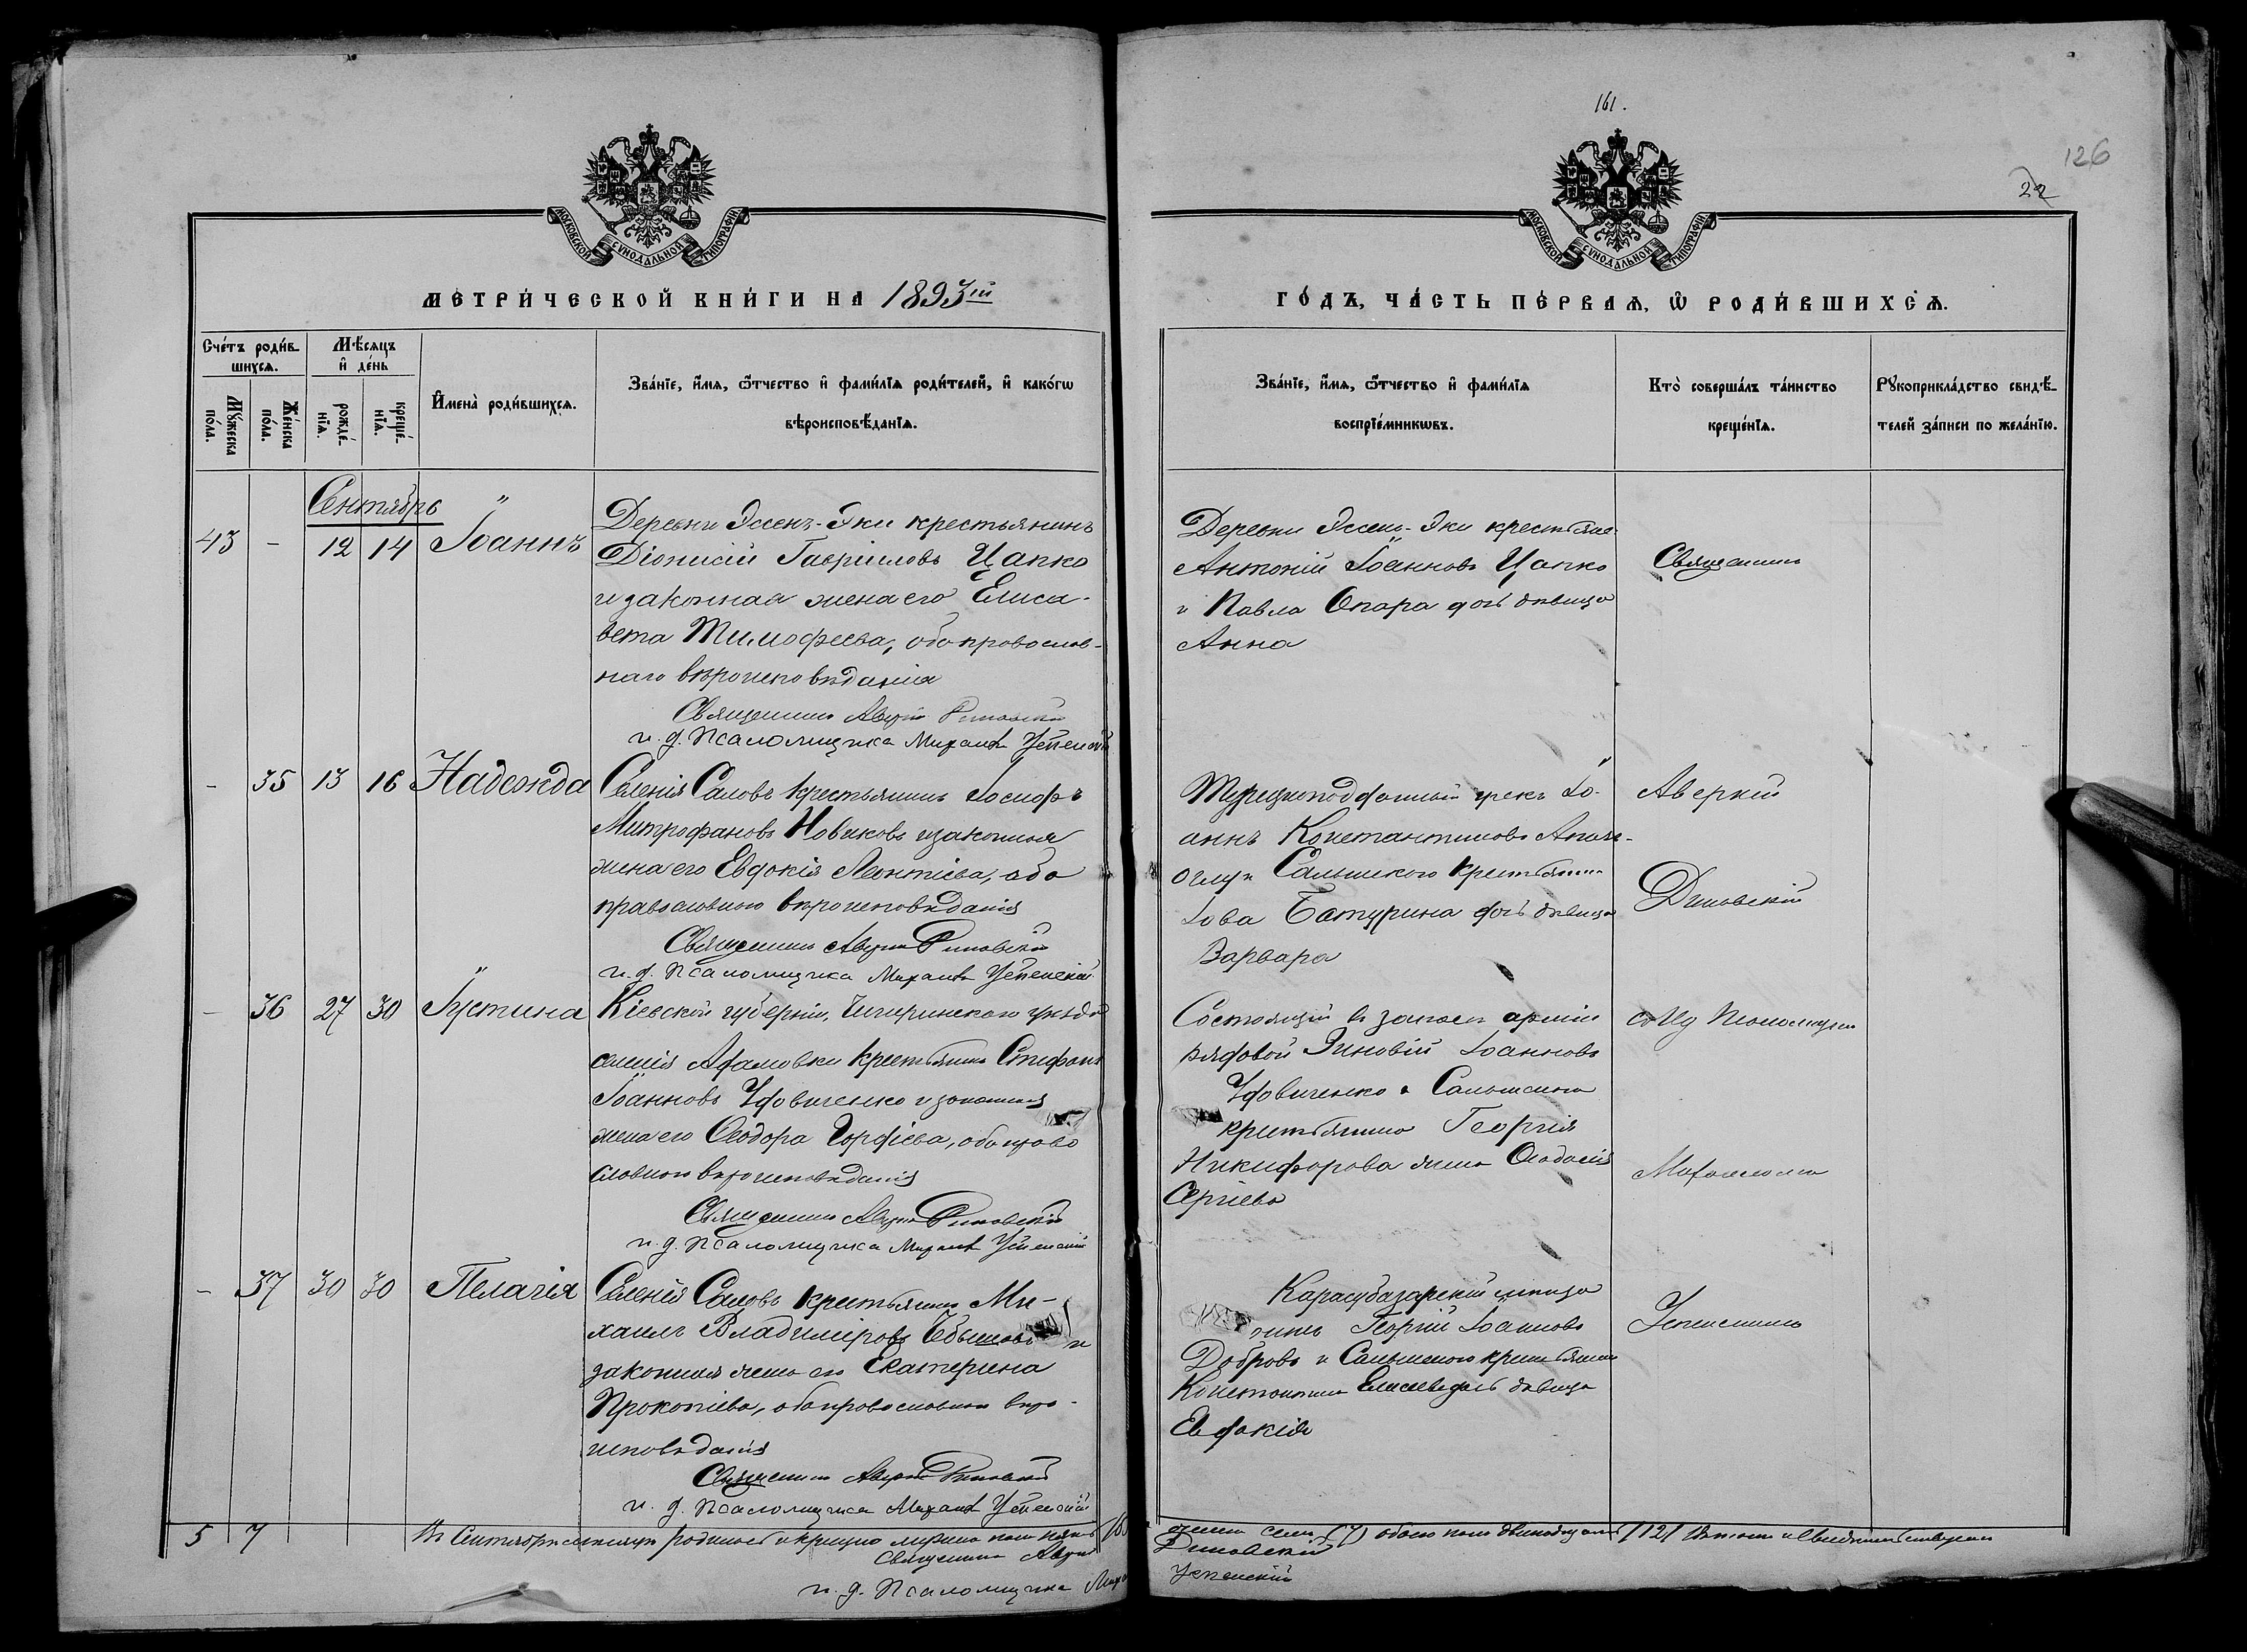 161.
126
22
МОСКОВСКОЙ СѴНОДАЛЬНОЙ ТИПОГРАФІИ
МОСКОВСКОЙ СѴНОДАЛЬНОЙ ТИПОГРАФІИ
МЕТРИ́ЧЕСКОЙ КНИ́ГИ НА 1893й
ГО́ДЪ, ЧА́СТЬ ПЕ́РВАѦ, Ѿ РОДИ́ВШИХСѦ.
Сче́тъ роди́вшихсѧ.
Мѣ́сѧцъ и҆ де́нь
Мꙋ́жеска по́ла.
Же́нска по́ла.
рожде́нїѧ.
креще́нїѧ.
И҆мена̀ роди́вшихсѧ.
Зва́нїе, и҆́мѧ, ѻ҆́тчество и҆ фами́лїѧ роди́телей, и҆ како́гѡ
вѣроисповѣ́данїѧ.
Зва́нїе, и҆́мѧ, ѻ҆́тчество и҆ фами́лїѧ
воспрїе́мникѡвъ.
Кто̀ соверша́лъ та́инство
креще́нїѧ.
Рꙋкоприкла́дство свидѣ́-
телей за́писи по жела́нїю.
Сентябрь
43 - 12 14 Іоаннъ
Деревни Эссенъ-Эки крестьянинъ
Діонисій Гавріиловъ Цапко
и законная жена его Елиса-
вета Тимофеева, оба православ-
наго вѣроисповѣданія
Священникъ Аверкій Диковскій
и. д. Псаломщика Михаилъ Успенскій
Деревни Эссенъ-Эки крестьяне
Антоній Іоанновъ Цапко
и Павла Опара дочь дѣвица
Анна
Священникъ
- 35 13 16 Надежда
Селенія Саловъ крестьянинъ Іосифъ
Митрофановъ Новиковъ и законная
жена его Евдокія Леонтіева, оба
православнаго вѣроисповѣданія
Священникъ Аверкій Диковскій
и. д. Псаломщика Михаилъ Успенскій
Турецкоподданный грекъ Іо-
аннъ Константиновъ
оглу и крестьянина
Іова Батурина дочь дѣвица
Варвара
Аверкій
Диковскій
- 36 27 30 Іустина
Кіевской губерніи, Чигиринскаго уѣзда
селенія Адамовки крестьянинъ Стефанъ
Іоанновъ Удовиченко и законная
жена его Ѳеодора, оба право
славнаго вѣроисповѣданія
Священникъ Аверкій Диковскій
и. д. Псаломщика Михаилъ Успенскій
Состоящій въ запасѣ арміи
рядовой Зиновій Іоанновъ
Удовиченко и
крестьянина Георгія
Никифорова жена Ѳеодосія
Сергіева
съ Псаломщикомъ
Михаиломъ
- 37 30 30 Пелагія
Селенія Саловъ крестьянинъ Ми-
хаилъ Владиміровъ и
законная жена его Екатерина
Прокопіева, оба православнаго вѣро-
исповѣданія
Священникъ Аверкій Диковскій
и. д. Псаломщика Михаилъ Успенскій
Карасубазарскій мѣща
нинъ Георгій Іоанновъ
Добровъ и крестьянина
Константина дочь дѣвица
Евдокія
Успенскимъ
5 7
Въ Сентябрѣ мѣсяцѣ родилось и крещено мужеска пола пять
семь (7) обоего пола двѣнадцать /12/
Священникъ Аверкій Диковскій
и. д. Псаломщика Михаилъ Успенскій